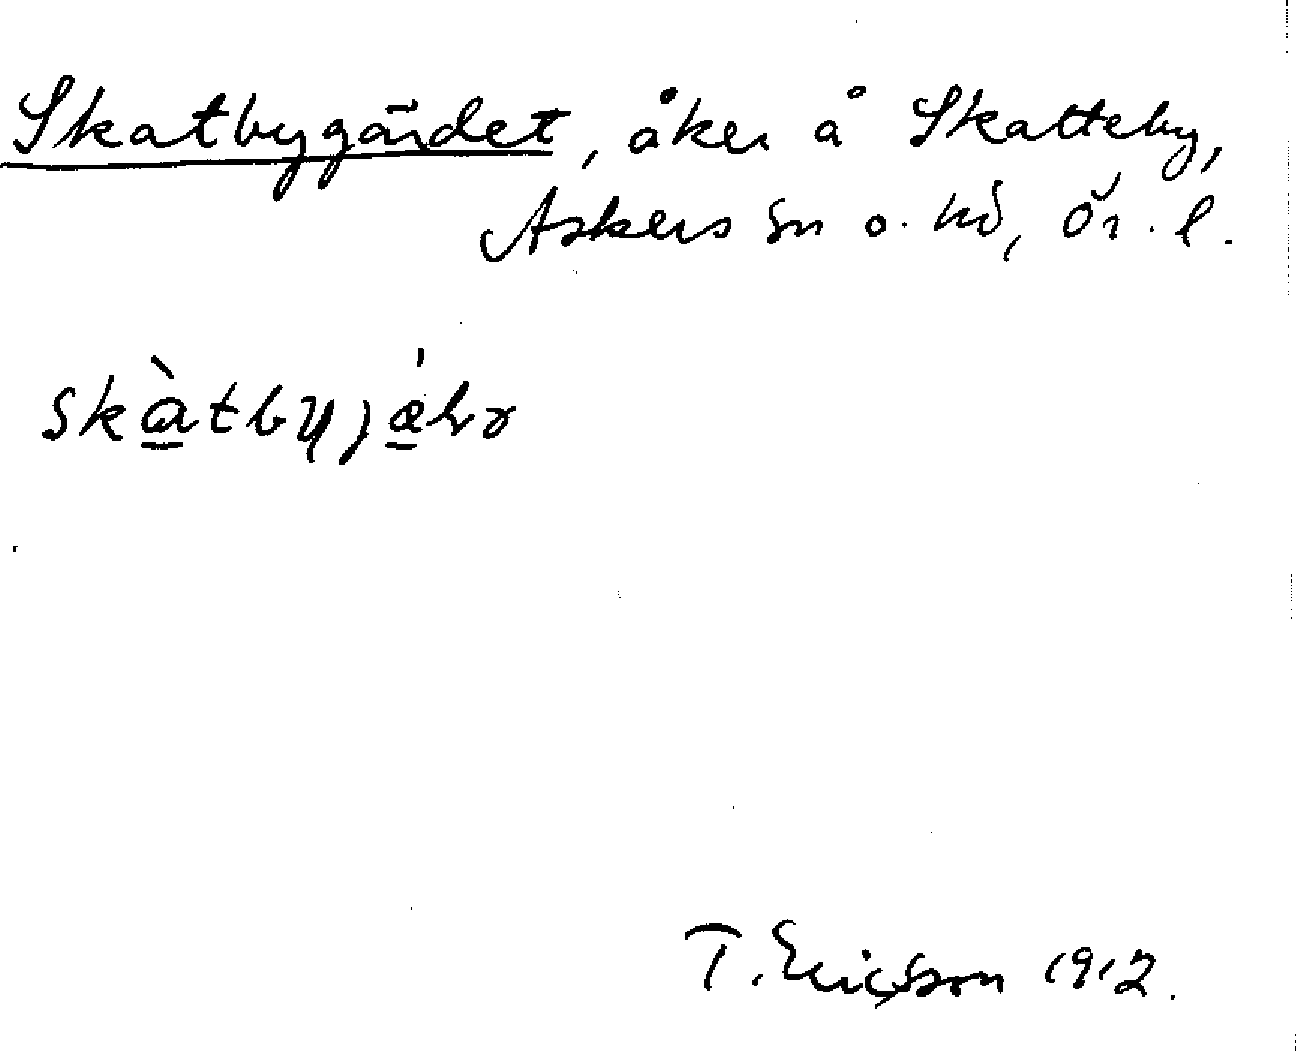 Skatbygärdet, åker å Skatteby,
Askers sn o. hd, Ör. l.
skàtbyjæ̀ɽə
T. Ericsson 1912.